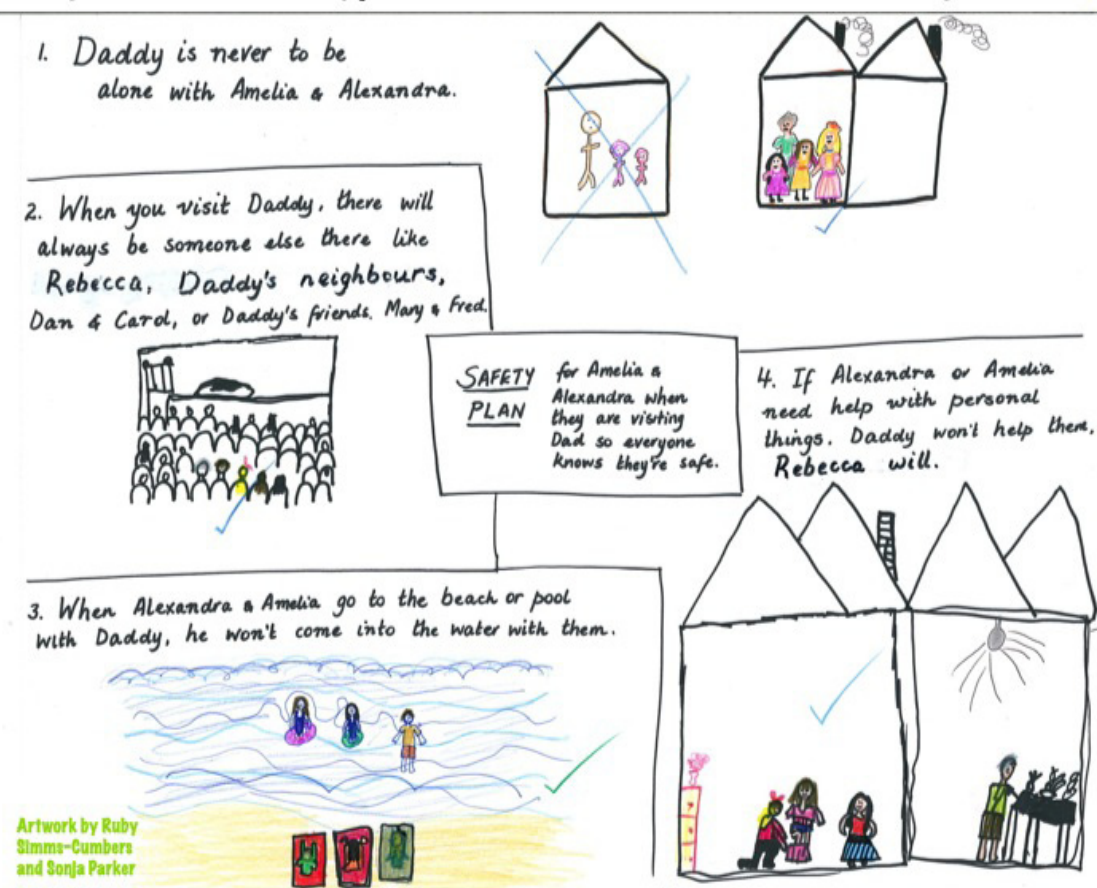 1. Daddy is never to be
alone with Amelia & Alexandra.
2. When you visit Daddy, there will
always be someone else there like
Rebecca, Daddy's neighbours,
Dan & Carol, or Daddy's friends, Mary & Fred.
SAFETY PLAN
for Amelia &
Alexandra when
they are visiting
Dad so everyone
knows they're safe.
4. If Alexandra or Amelia
need help with personal
things. Daddy won't help them,
Rebecca will.
3. When Alexandra & Amelia go to the beach or pool
with Daddy, he won't come into the water with them.
Artwork by Ruby
Simms-Cumbers
and Sonja Parker